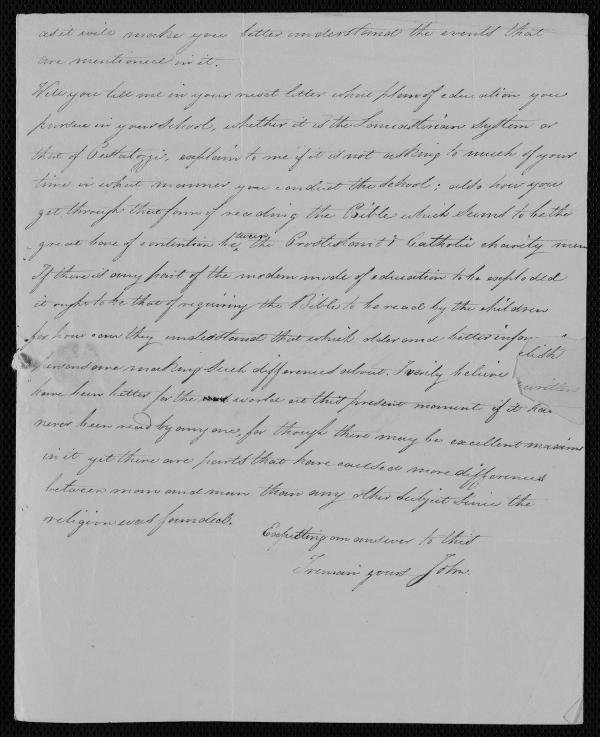 as it will make you better understand the events that
are mentioned in it.
Will you tell me in your next letter what plan of education you
pursue in your School, whether it is the Lancastrian System or
that of Pestalozzi, explain to me if it is not asking to much of your
time in what manner you conduct the school; also how you
get through that form of reading the Bible which seems to be the
great bone of contention between the Protistant & Catholic charity men
If there is any part of the modern mode of education to be exploded
it ought to be that of requiring the Bible to be read by the children
for how can they understand that which older and better infor
are making such differences about. I verily believe
have been better for the world at this present moment if it had
never been read by any one, for though there may be excellent maxims
in it yet there are parts that have caused more differences
between man and man than any other subject since the
religion was founded.
Expecting an answer to this
I remain yours John.